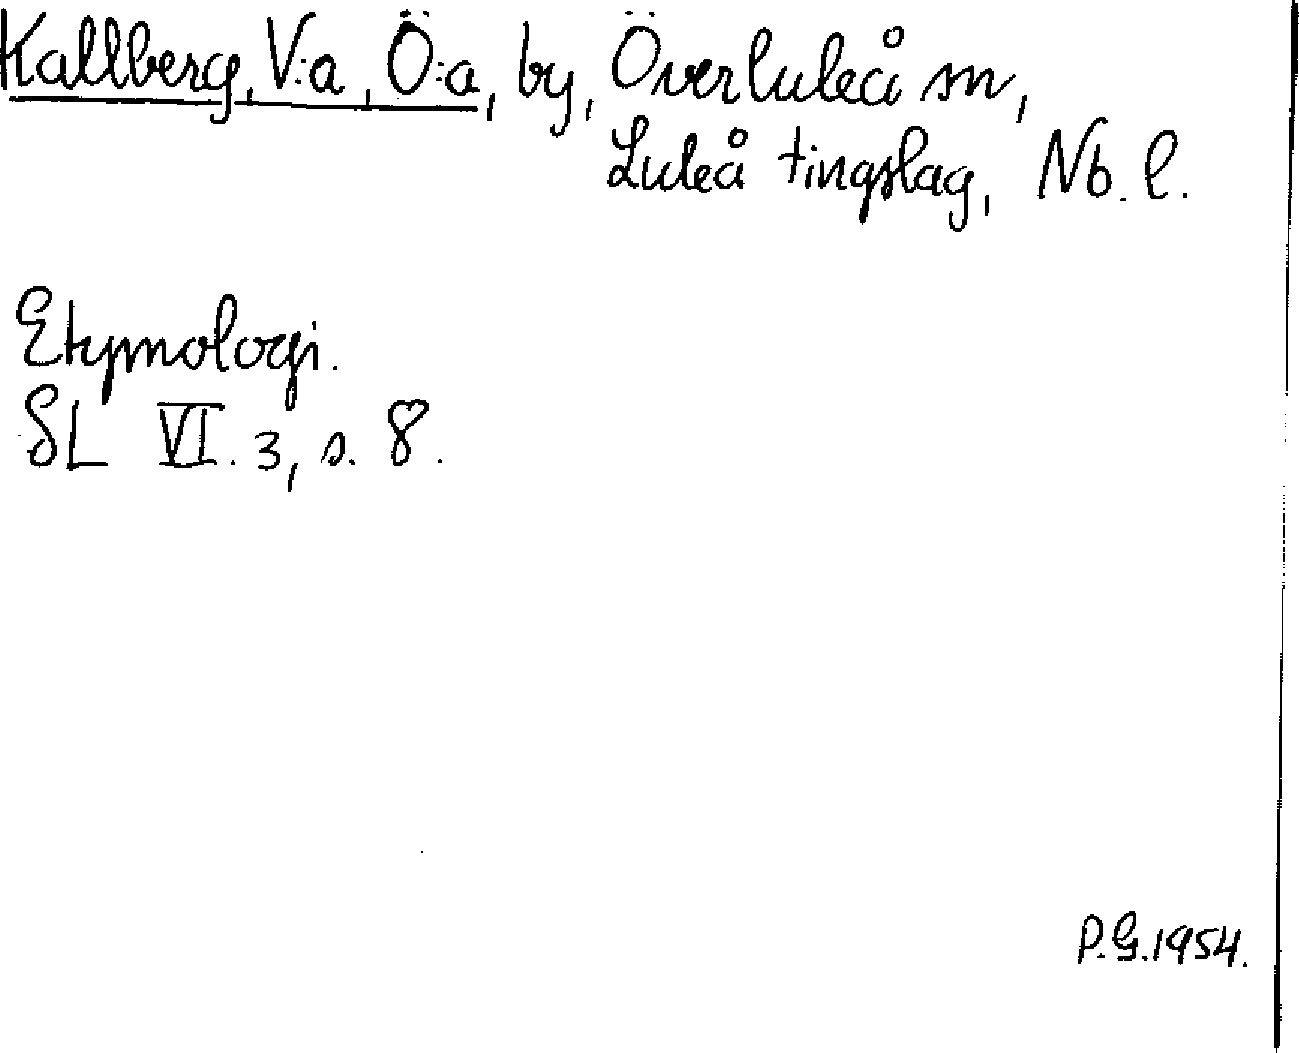 Kallberg, V:a, Ö:a, by, Överluleå sn,
Luleå tingslag, Nb. l.
Etymologi.
SL VI. 3, s. 8.
P.G.1954.